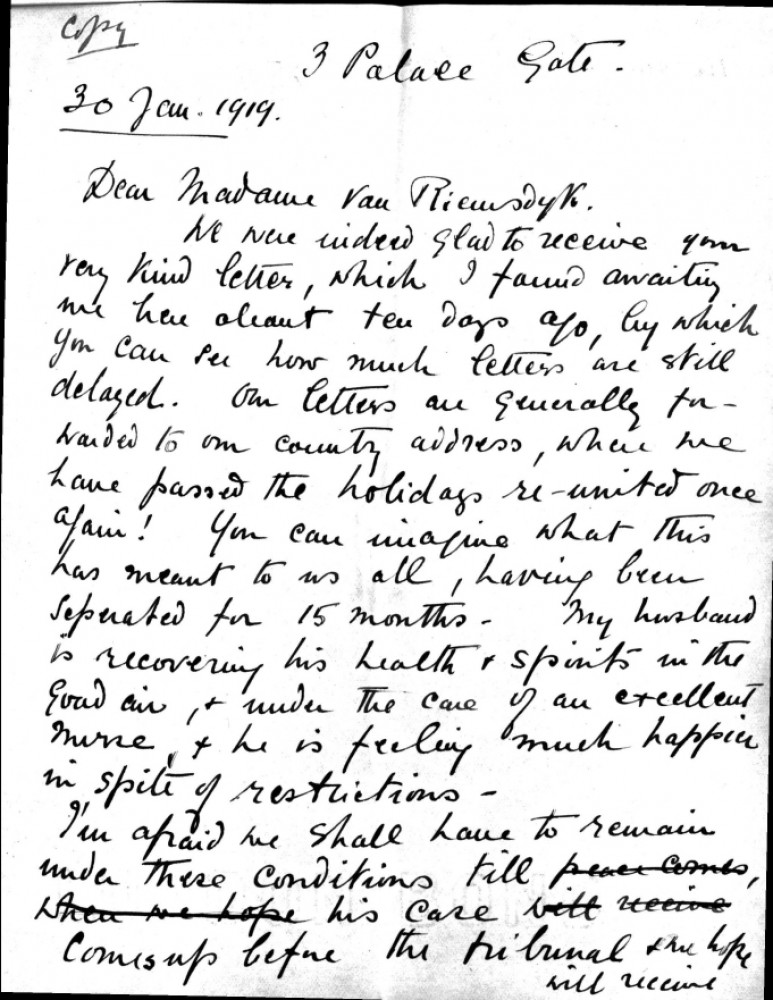 Copy
3 Palace Gate.
30 Jan. 1919.
Dear Madame Van Riemsdyk.
We were indeed glad to receive your
very kind letter, which I found awaiting
me here about ten days ago, by which
you can see how much letters are still
delayed. Our letters are generally for-
warded to our country address, where we
have passed the holidays re-united once
again! You can imagine what this
has meant to us all, having been
seperated for 15 months - My husband
is recovering his health & spirits in the
good air, & under the care of an excellent
nurse, & he is feeling much happier
in spite of restrictions -
I'm afraid we shall have to remain
under these conditions till peace comes,
when we hope his case will receive
comes up before the tribunal & we hope
will receive